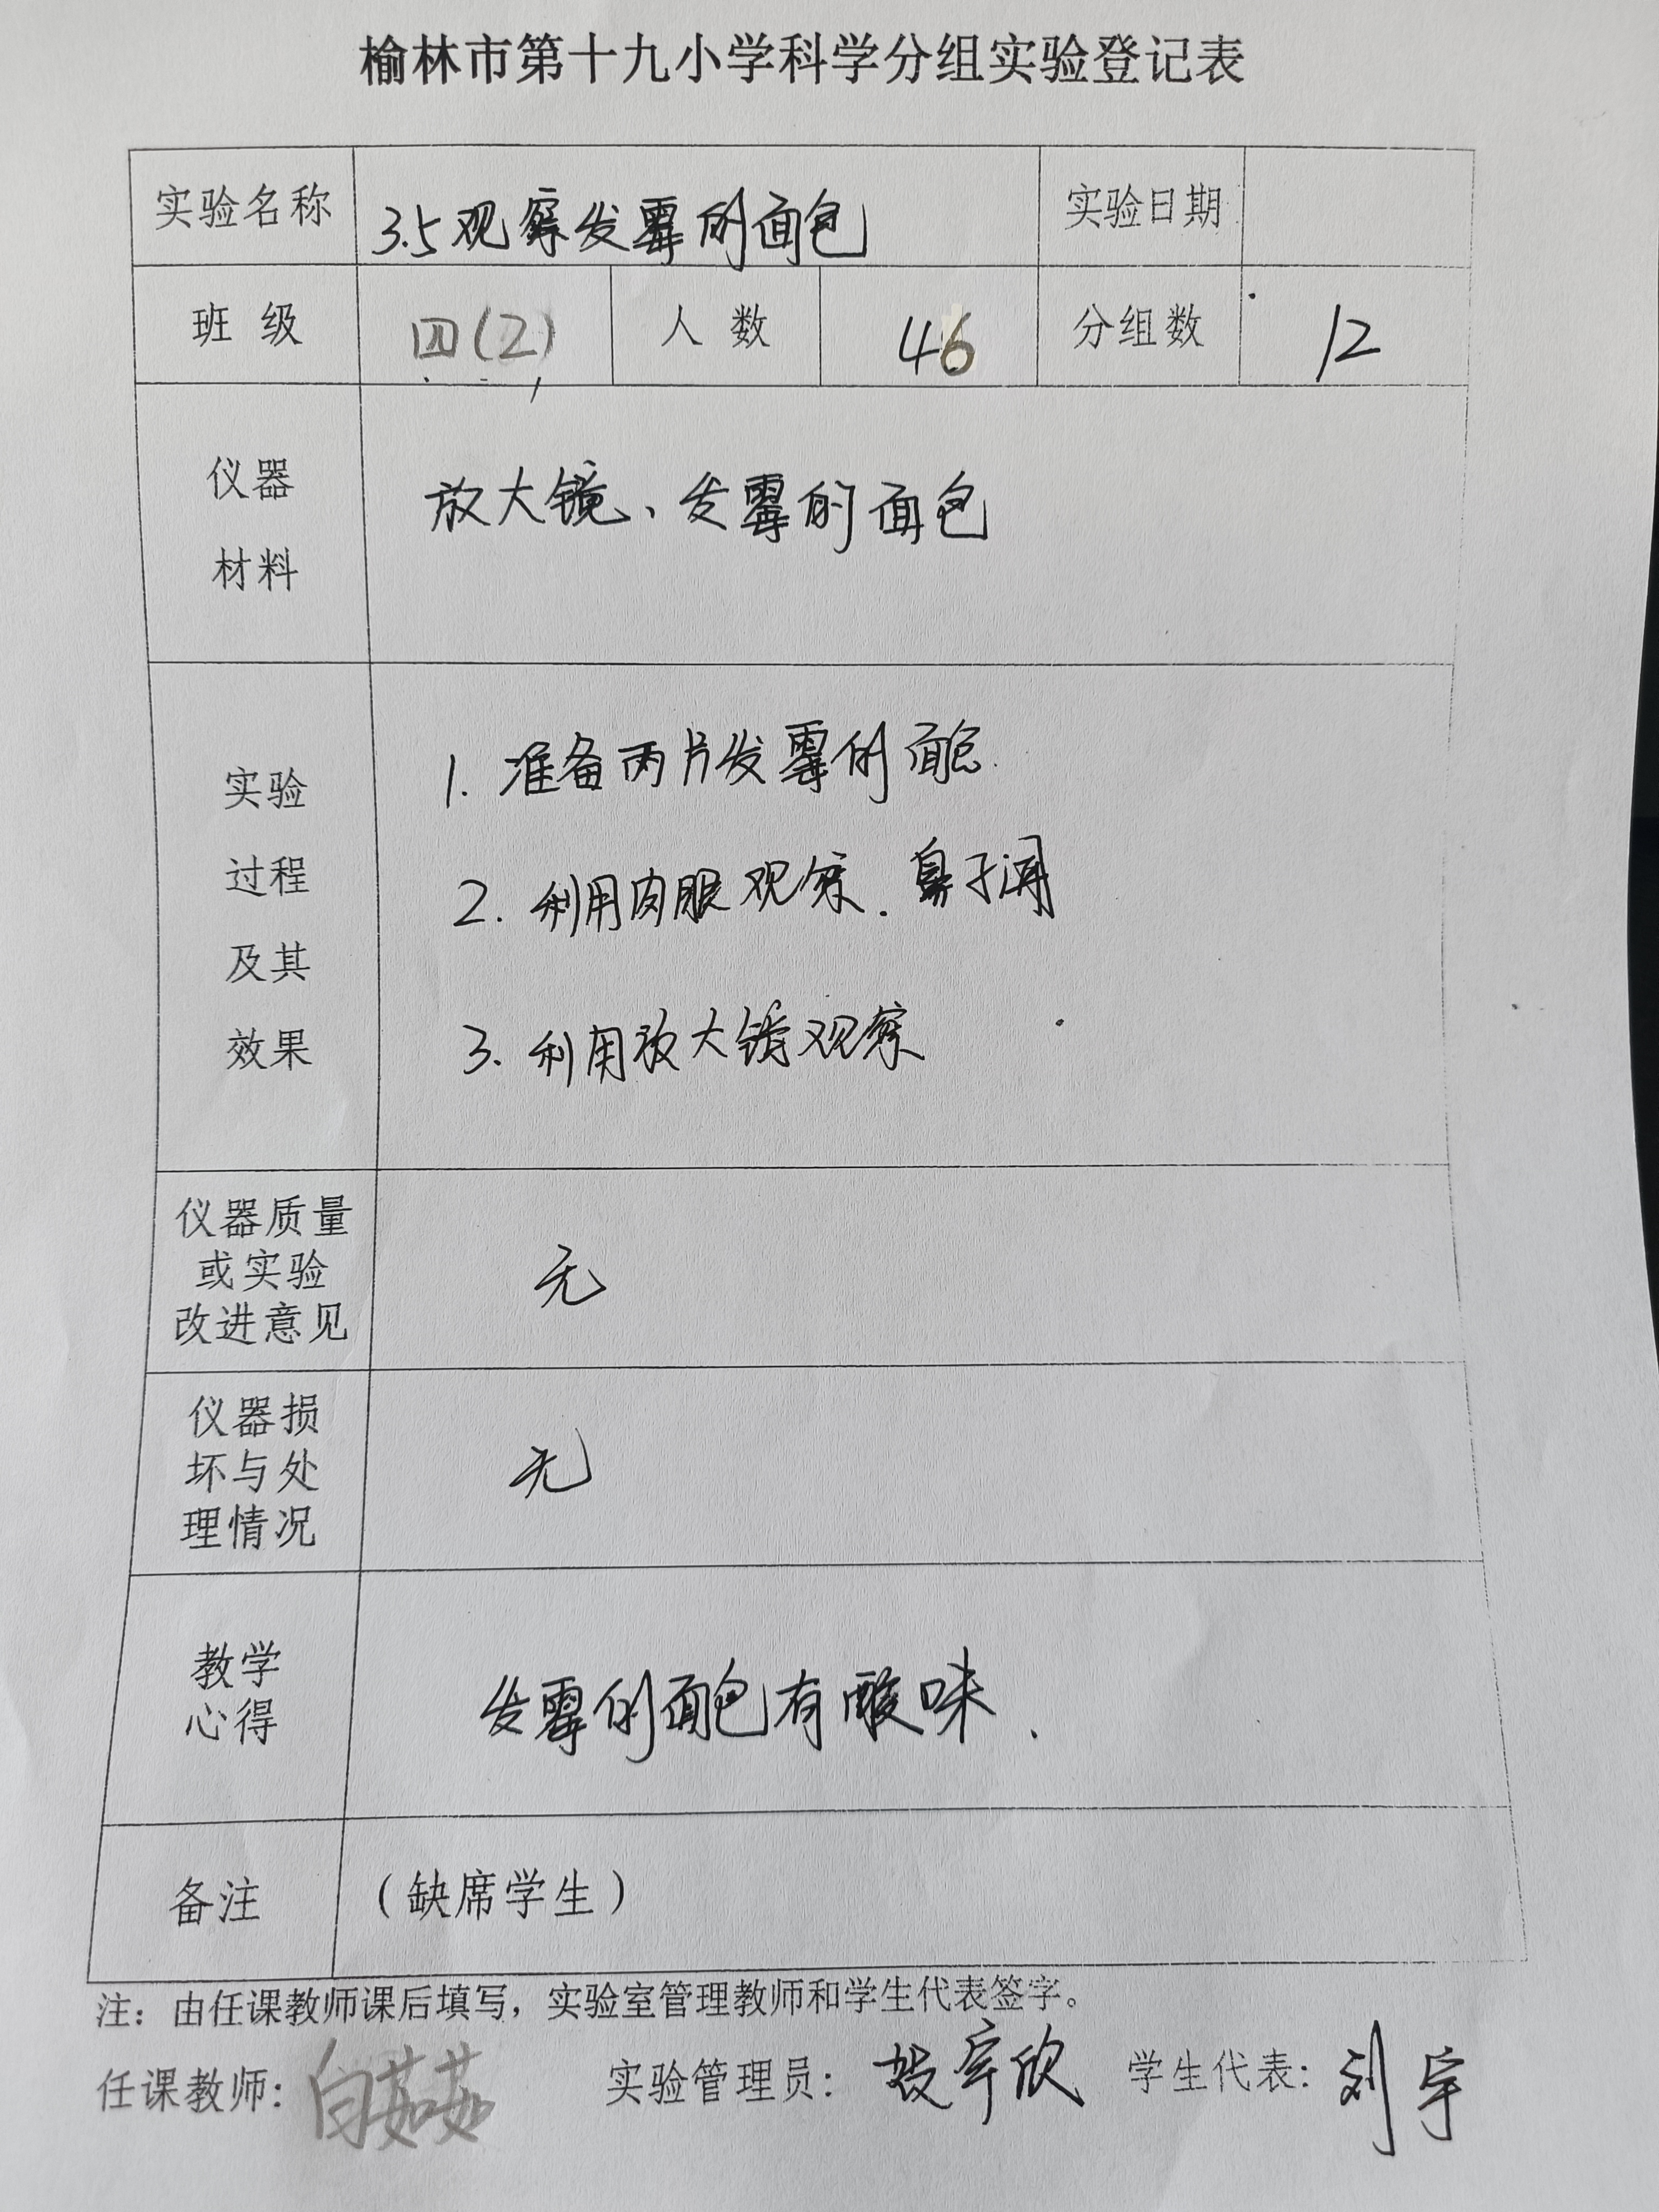 榆林市第十九小学科学分组实验登记表
实验名称 3.5观察发霉的面包 实验日期
班 级 四(2) 人 数 46 分组数 12
仪器
材料
放大镜、发霉的面包
实验
过程
及其
效果
1. 准备两片发霉的面包.
2. 利用肉眼观察. 鼻子闻
3. 利用放大镜观察
仪器质量
或实验
改进意见
无
仪器损
坏与处
理情况
无
教学
心得
发霉的面包有酸味.
备注 (缺席学生)
注: 由任课教师课后填写, 实验室管理教师和学生代表签字。
任课教师: 白茹茹 实验管理员: 宇欣 学生代表: 刘宇